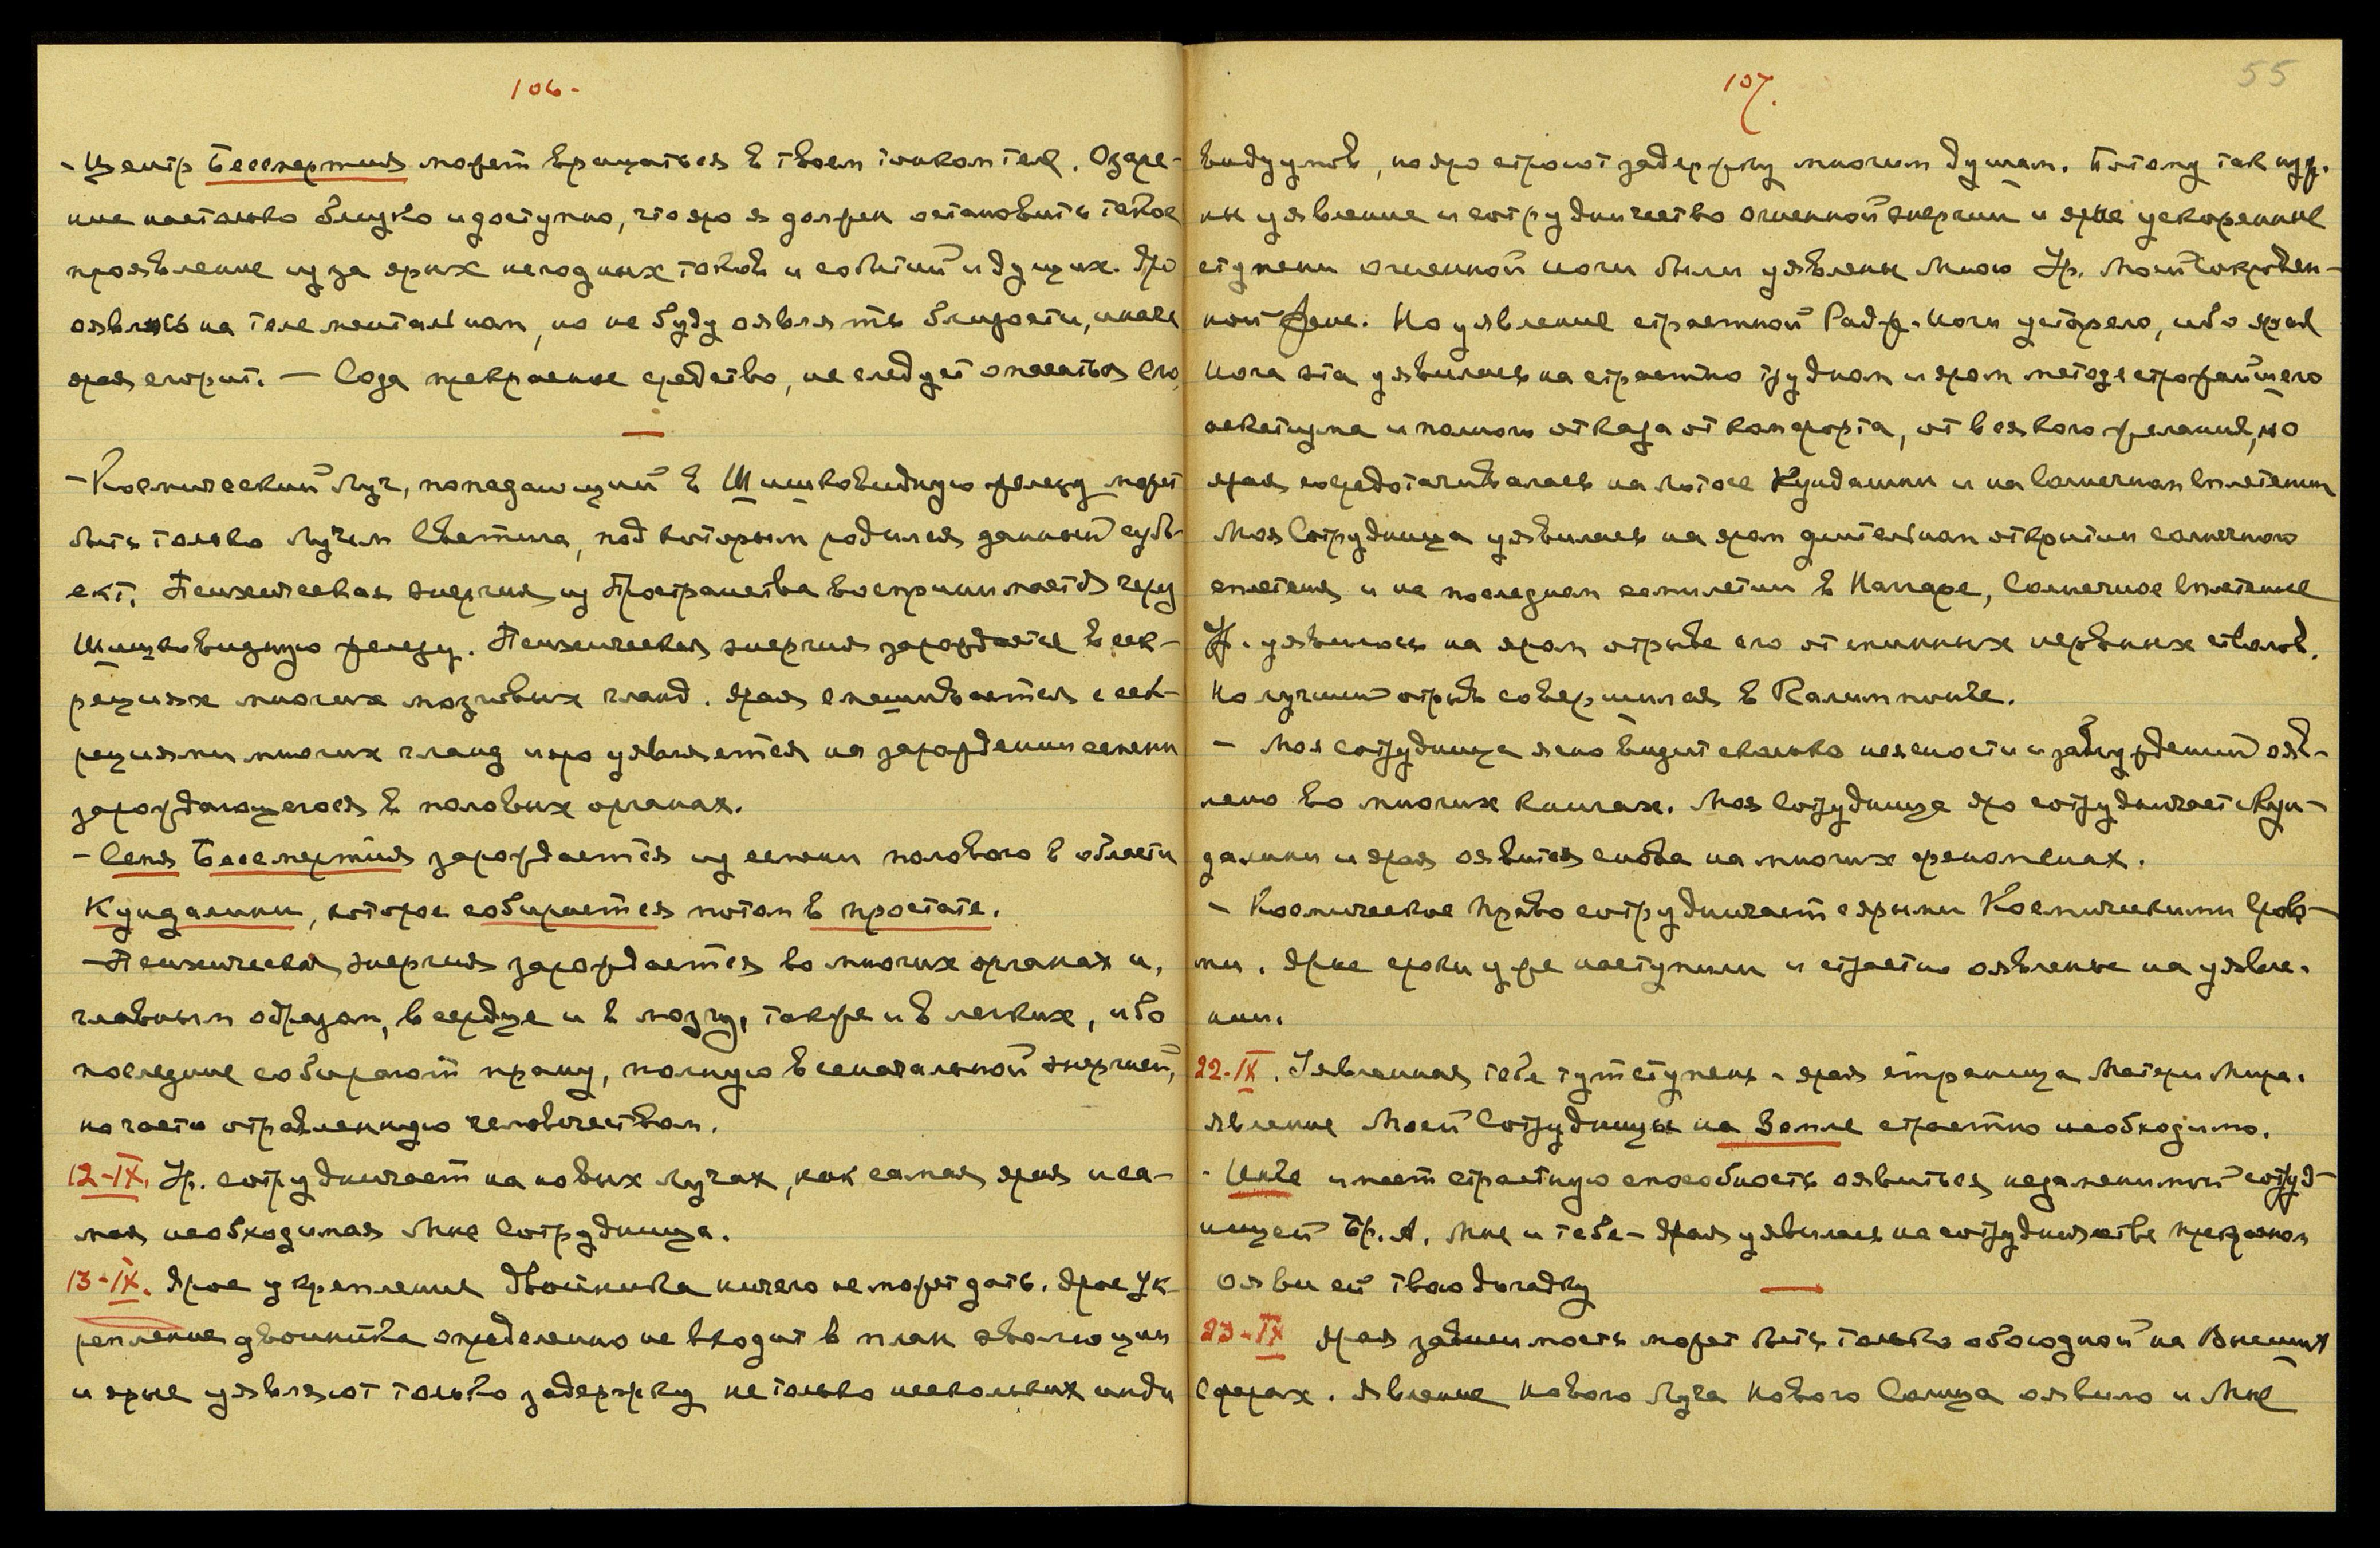 106.
- Центр Бессмертия может вращаться в твоем тонком теле. Озаре-
ние настолько близко и доступно, что яро я должен остановить такое
проявление из за ярых негодных токов и событий идущих. Яро
оявлюсь на теле ментальном, но не буду оявлять близости, иначе
ярая сгорит. — Сода прекрасное средство, не следует опасаться его.
- Космический Луч, попадающий в Шишковидную железу может
быть только Лучем Светила, под которым родился данный субъ-
ект. Психическая энергия из Пространства воспринимается через
Шишковидную железу. Психическая энергия зарождается в сек-
рециях многих мозговых гланд. Ярая смешивается с сек-
рециями многих гланд и яро уявляется на зарождении семени
зарождающегося в половых органах.
- Семя Бессмертия зарождается из семени полового в области
Кундалини, которое собирается потом в простате.
- Психическая энергия зарождается во многих органах и,
главным образом, в сердце и в мозгу, также и в легких, ибо
последние собирают прану, полную всеначальной энергией,
но часто отравленную человечеством.
12-IX. Ур. сотрудничает на новых лучах, как самая ярая и са-
мая необходимая Мне Сотрудница.
13-IX. Ярое укрепление Двойника ничего не может дать. Ярое ук-
репление двойника определенно не входит в план эволюции
и ярые уявляют только задержку не только нескольких инди
107.
55
видуумов, но яро строют задержку многим душам. Потому так нуж-
ны уявление и сотрудничество огненной энергии и ярые ускоренные
ступени огненной йоги были уявлены Мною Ур. Моей Сокровен-
ной Жене. Но уявление страстной Радж-Йоги устарело, ибо ярая
Йога эта уявилась на страстно трудном и яром методе строжайшего
аскетизма и полного отказа от комфорта, от всякого желания, но
ярая сосредотачивалась на лотосе Кундалини и на Солнечном Сплетении
Моя Сотрудница уявилась на яром длительном открытии солнечного
сплетения и на последнем семилетии в Наггаре, Солнечное Сплетение
Ур. уявилось на яром отрыве его от спинных нервных стволов.
Но лучший отрыв совершился в Калимпонге.
- Моя сотрудница ясно видит сколько неясности и заблуждений ояв-
лено во многих книгах. Моя Сотрудница яро сотрудничает с Кун-
далини и ярая оявится снова на многих феноменах.
- Космическое Право сотрудничает с ярыми Космическими Срока-
ми. Ярые сроки уже наступили и страстно оявлены на уявле-
нии.
22-IX. Уявленная тебе тут ступень - ярая страница Матери Мира.
Явление Моей Сотрудницы на Земле страстно необходимо.
- Инге имеет страстную способность оявиться незаменимой сотруд-
ницей Бр. А. Мне и тебе - Ярая уявилась на сотрудничестве преданном
Ояви ей твою догадку
23-IX Ярая зависимость может быть только обоюдной на Высших
Сферах. Явление Нового Луча Нового Солнца оявило и Мне